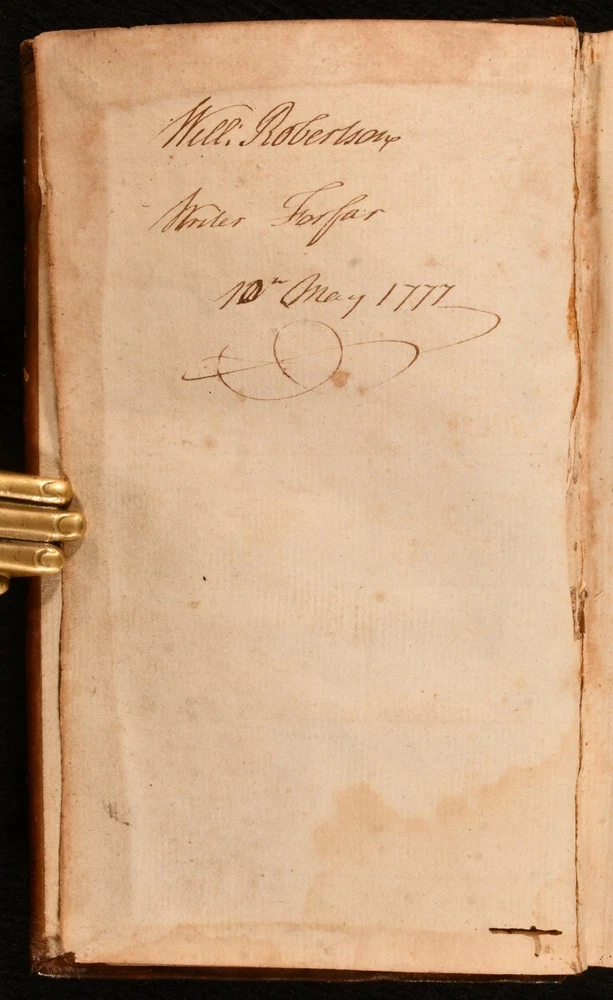 Will: Robertson
Writer Forfar
10th May 1777